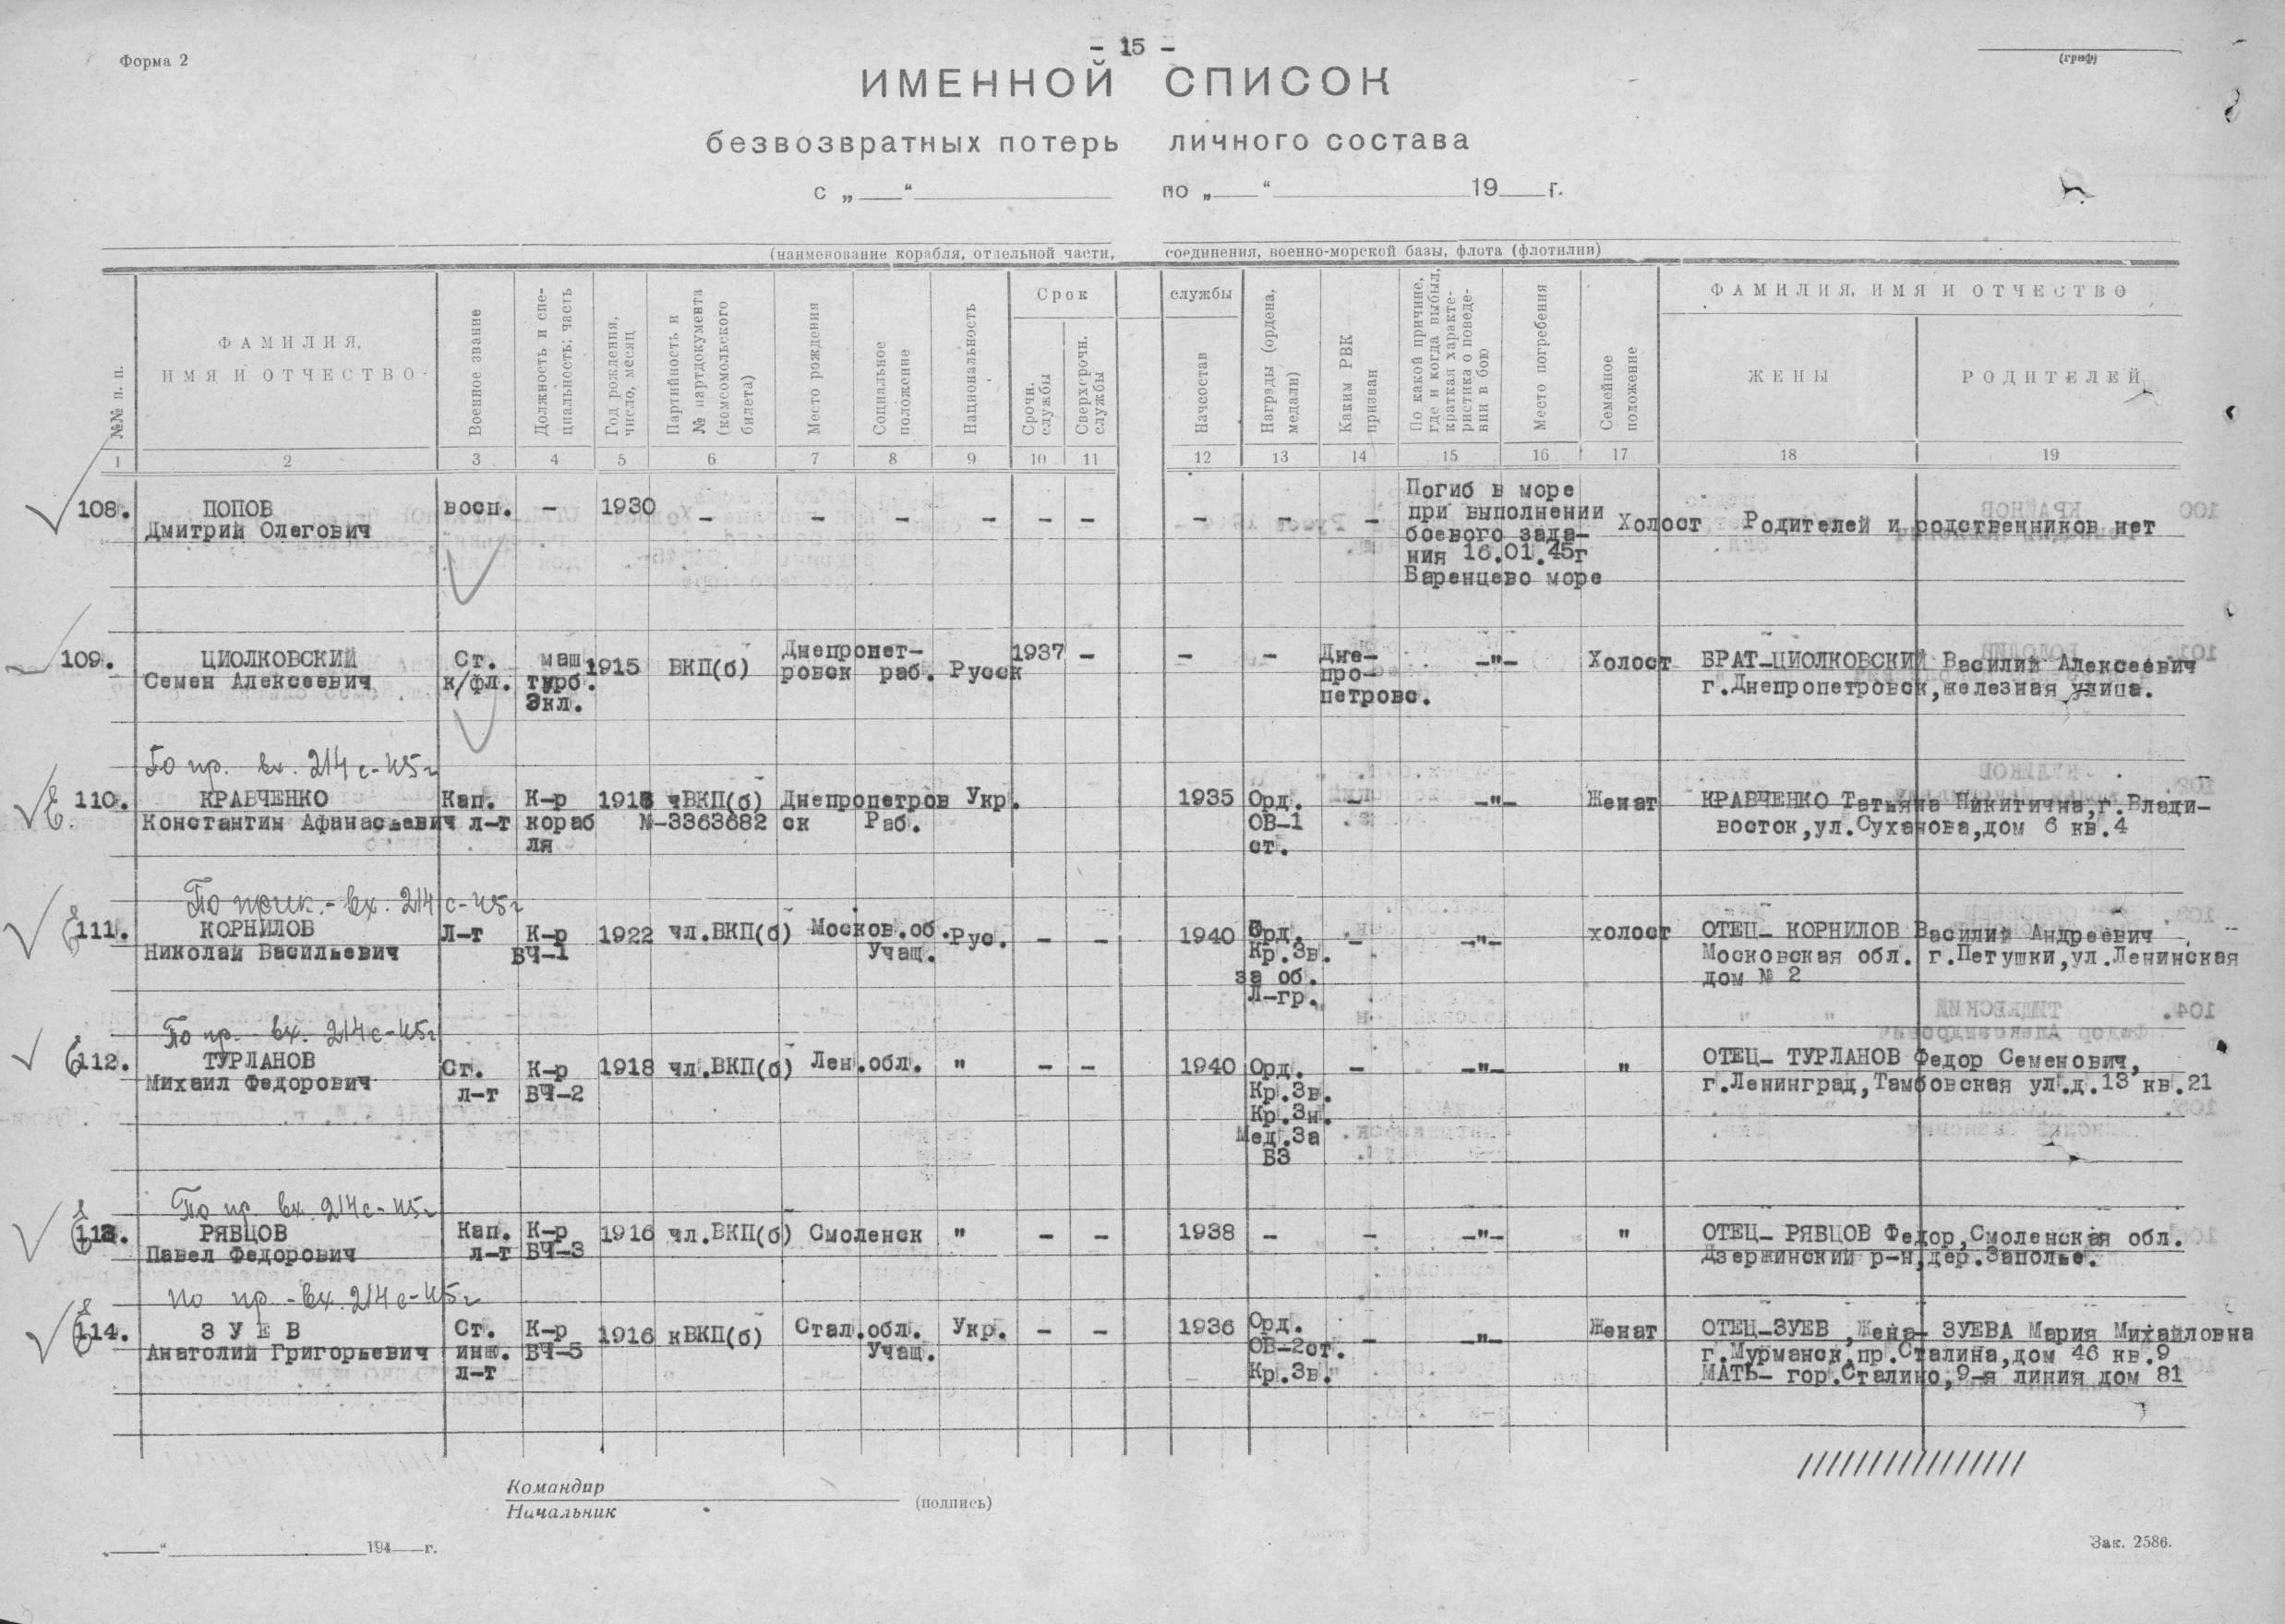 Форма 2
- 15 -
(гриф)
ИМЕННОЙ СПИСОК
безвозвратных потерь личного состава
с „ “ по „ “ 19 г.
(наименование корабля, отдельной части, соединения, военно-морской базы, флота (флотилии)
№№ п. п.
ФАМИЛИЯ, ИМЯ И ОТЧЕСТВО
Военное звание
Должность и специальность; часть
Год рождения, число, месяц
Партийность и № партдокумента (комсомольского билета)
Место рождения
Социальное положение
Национальность
Срок службы
Срочн. службы
Сверхсрочн. службы
Начсостав
Награды (ордена, медали)
Каким РВК призван
По какой причине, где и когда выбыл, краткая характеристика о поведении в бою
Место погребения
Семейное положение
ФАМИЛИЯ, ИМЯ И ОТЧЕСТВО
ЖЕНЫ
РОДИТЕЛЕЙ
1 2 3 4 5 6 7 8 9 10 11 12 13 14 15 16 17 18 19
108. ПОПОВ Дмитрий Олегович восп. - 1930 - - - - - - - - - Погиб в море при выполнении боевого зада-ния 16.01.45г Баренцево море Холост Родителей и родственников нет
109. ЦИОЛКОВСКИЙ Семен Алексеевич Ст. к/фл. маш турб. Экл. 1915 ВКП(б) Днепропет-ровск раб. Русск 1937 - - - Дне-про-петровс. -"- Холост БРАТ-ЦИОЛКОВСКИЙ Василий Алексеевич
г.Днепропетровск,железная улица.
По пр. вх. 214с-45г
110. КРАВЧЕНКО Константин Афанасьевич Кап. л-т К-р кораб ля 1918 чВКП(б) №-3363682 Днепропетров ск Раб. Укр. 1935 Орд. ОВ-1 ст. - -"- Женат КРАВЧЕНКО Татьяна Никитична,г.Влади-
восток,ул.Суханова,дом 6 кв.4
По прик.- вх. 214с-45г
111. КОРНИЛОВ Николай Васильевич Л-т К-р БЧ-1 1922 чл.ВКП(б) Москов.об. Учащ. Рус. - - 1940 Орд. Кр.Зв. за об. Л-гр. - -"- холост ОТЕЦ- КОРНИЛОВ Василий Андреевич
Московская обл. г.Петушки,ул.Ленинская
дом № 2
По пр. - вх. 214с-45г
112. ТУРЛАНОВ Михаил Федорович Ст. л-т К-р БЧ-2 1918 чл.ВКП(б) Лен.обл. " - - 1940 Орд. Кр.Зв. Кр.Зн. Мед.За БЗ - -"- " ОТЕЦ- ТУРЛАНОВ Федор Семенович,
г.Ленинград,Тамбовская ул.д.13 кв.21
По пр. вх. 214с-45г
113. РЯБЦОВ Павел Федорович Кап. л-т К-р БЧ-3 1916 чл.ВКП(б) Смоленск " - - 1938 - - -"- " ОТЕЦ- РЯБЦОВ Федор,Смоленская обл.
Дзержинский р-н,дер.Заполье.
по пр - вх. 214с-45г
114. ЗУЕВ Анатолий Григорьевич Ст. инж. л-т К-р БЧ-5 1916 кВКП(б) Стал.обл. Учащ. Укр. - - 1936 Орд. ОВ-2ст. Кр.Зв. - -"- Женат ОТЕЦ-ЗУЕВ ,Жена- ЗУЕВА Мария Михайловна
г.Мурманск,пр.Сталина,дом 46 кв.9
МАТЬ- гор.Сталино,9-я линия дом 81
////////////////
Командир
Начальник
(подпись)
„ “ 194 г.
Зак. 2586.